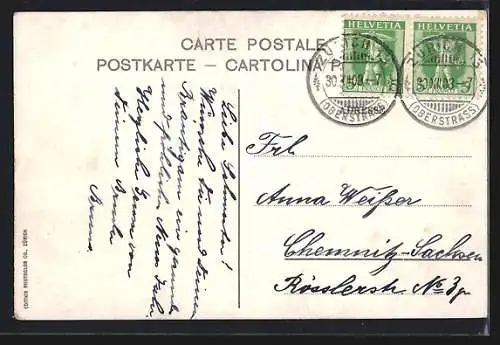 CARTE POSTALE
POSTKARTE — CARTOLINA
HELVETIA HELVETIA
ZÜRICH
30.XII.09.-7
(OBERSTRASS)
ZÜRICH
30.XII.09.-7
(OBERSTRASS)
ADRESSE
Liebe Schwester!
Wünsche Dir und deinem
Bräutigam ein gesundes
und glückl. Neues Jahr.
Herzliche Grüsse von
deinem Bruder
Bruno.
Frl.
Anna Weißer
Chemnitz-Sachsen
Rösslerstr. No 3
EDITION PHOTOGLOB CO., ZÜRICH